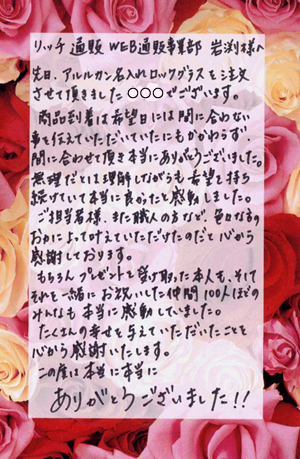 リッチ通販 WEB通販事業部 岩渕様へ
先日、アルルカン名入れロックグラスを注文
させて頂きました ○○○でございます。
商品到着は希望日には間に合わない
事を伝えていただいていたにもかかわらず、
間に合わせて頂き本当にありがとうございました。
無理だとは理解しながらも希望を持ち
続けていて本当に良かったと感動しました。
ご担当者様、また職人の方など、色々な方の
おかげで叶えていただけたのだと心から
感謝しております。
もちろん、プレゼントを受け取った本人も、そして
それを一緒にお祝いした仲間100人ほどの
みんなも本当に感動していました。
たくさんの幸せを与えていただいたことを
心から感謝いたします。
この度は本当に本当に
ありがとうございました!!